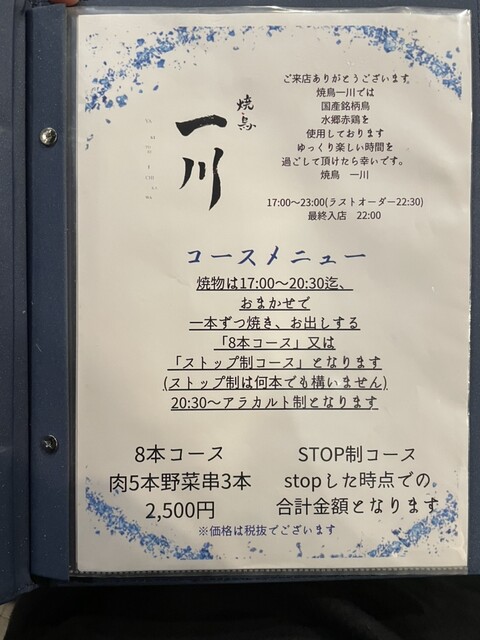 ご来店ありがとうございます。
焼鳥一川では
国産銘柄鳥
水郷赤鶏を
使用しております
ゆっくり楽しい時間を
過ごして頂けたら幸いです。
焼鳥　一川
焼鳥
一川
17:00〜23:00(ラストオーダー22:30)
最終入店　22:00
コースメニュー
焼物は17:00〜20:30迄、
おまかせで
一本ずつ焼き、お出しする
「8本コース」又は
「ストップ制コース」となります
(ストップ制は何本でも構いません)
20:30〜アラカルト制となります
8本コース
肉5本野菜串3本
2,500円
STOP制コース
stopした時点での
合計金額となります
※価格は税抜でございます